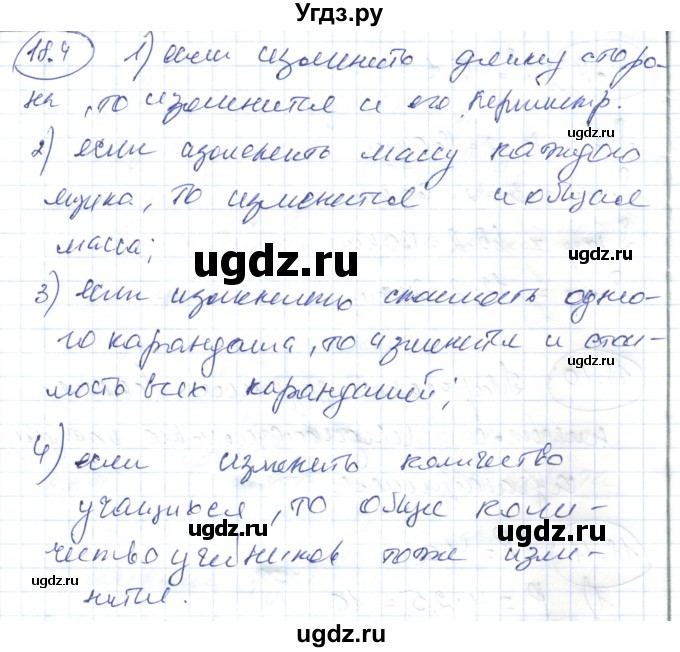 Угдз.ру
18.4 1) если изменить длину сторо-
ны, то изменится и его периметр.
uгдz.ru
2) если изменить массу каждого
ящика, то изменится и общая
ugdz.ru
масса;
ugdz.ru
3) если изменить стоимость одно-
го карандаша, то изменится и стои-
мость всех карандашей;
ugdz.ru
4) если изменить количество
учащихся, то общее коли-
ugdz.ru
ugdz.ru
чество учеников тоже изме-
ugdz.ru
нится.
ugdz.ru
ugdz.ru